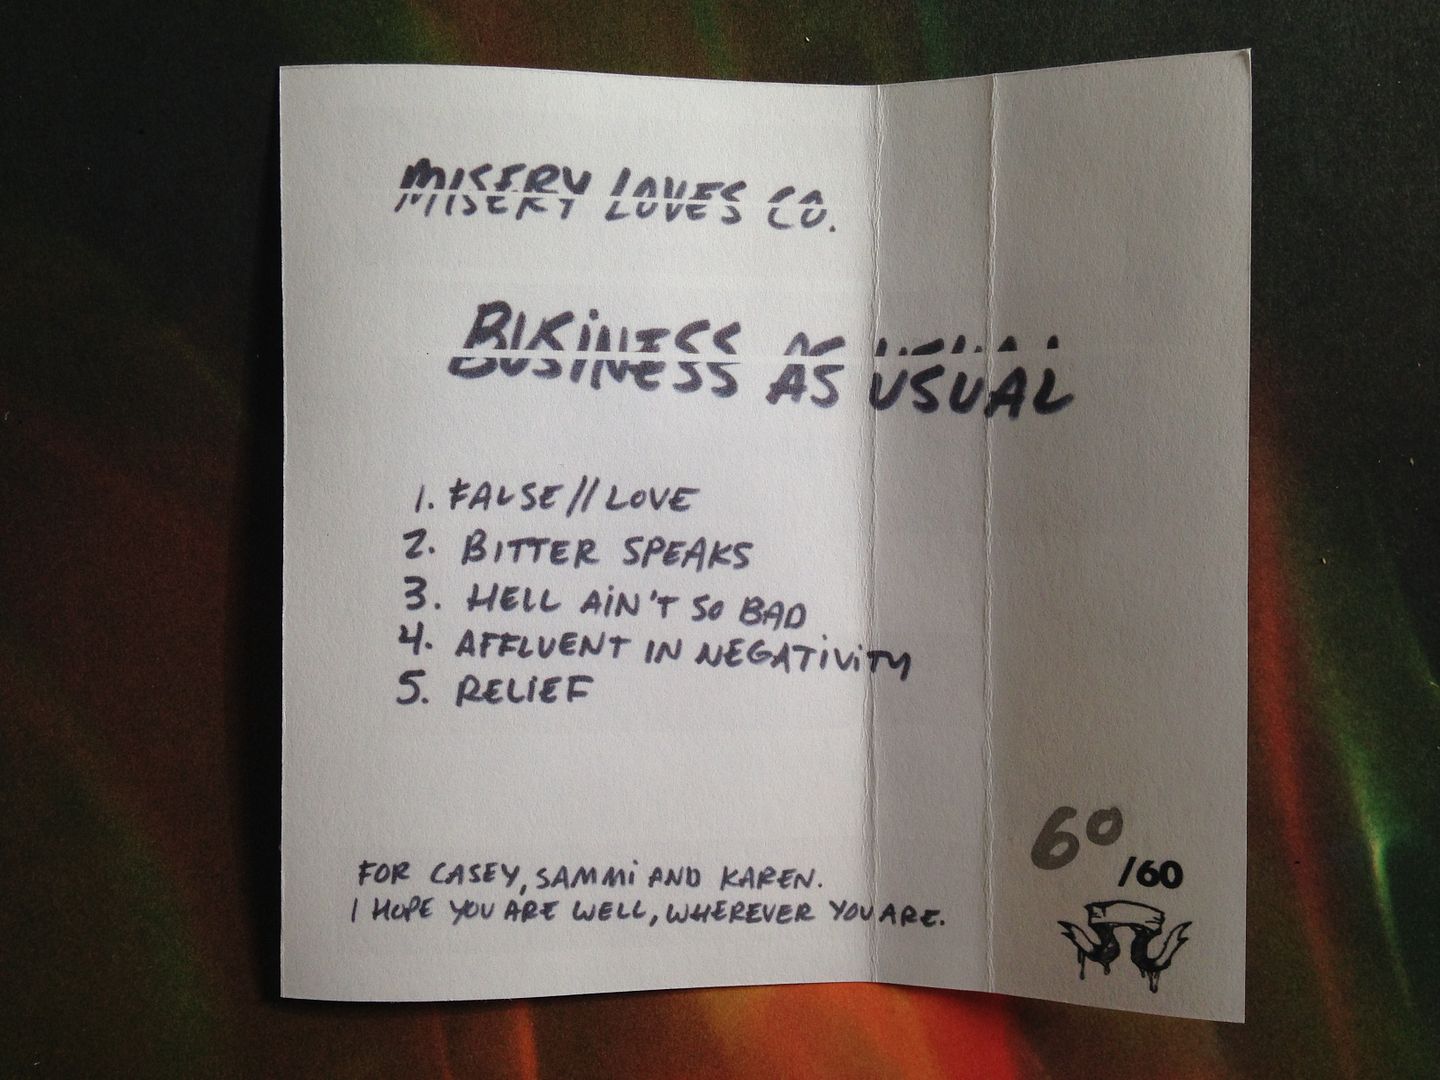 MISERY LOVES CO.
BUSINESS AS USUAL
1. FALSE//LOVE
2. BITTER SPEAKS
3. HELL AIN'T SO BAD
4. AFFLUENT IN NEGATIVITY
5. RELIEF
FOR CASEY, SAMMI AND KAREN.
I HOPE YOU ARE WELL, WHEREVER YOU ARE.
60
/60